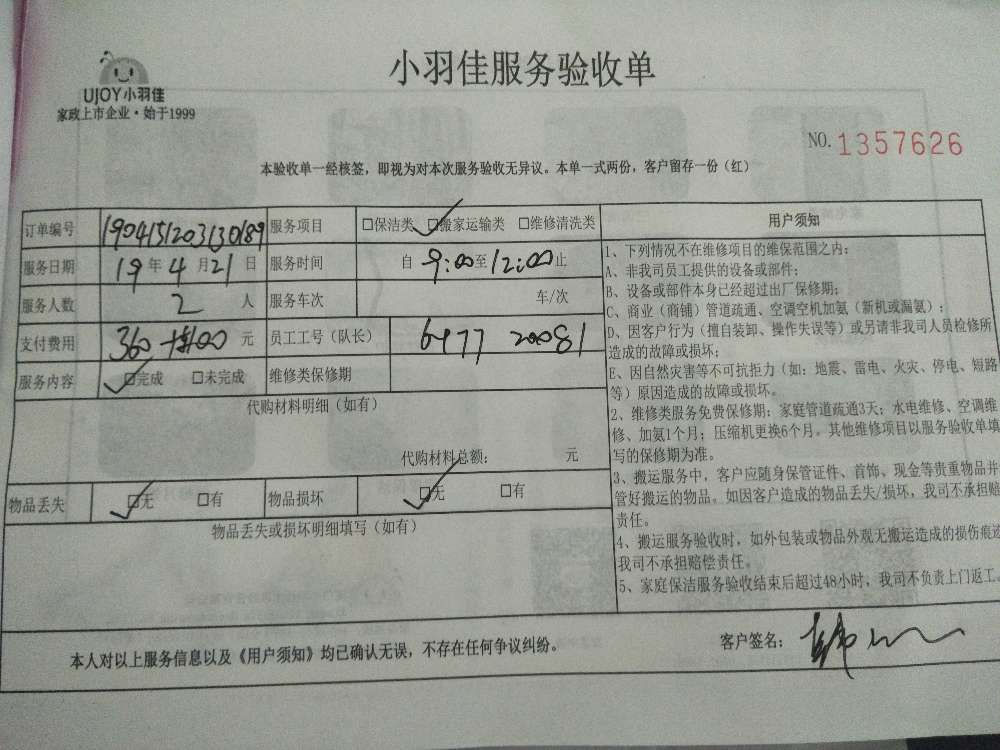 小羽佳服务验收单
UJOY小羽佳
家政上市企业·始于1999
NO.1357626
本验收单一经核签，即视为对本次服务验收无异议，本单一式两份，客户留存一份（红）
订单编号 1904151203130189 服务项目 □保洁类 □搬家运输类 □维修清洗类
服务日期 19年4月21日 服务时间 自9:00至12:00止
服务人数 2人 服务车次 车/次
支付费用 360 元 员工工号（队长） 6477 20081
服务内容 □完成 □未完成 维修类保修期
代购材料明细（如有）
代购材料总额： 元
物品丢失 □无 □有 物品损坏 □无 □有
物品丢失或损坏明细填写（如有）
用户须知
1、下列情况不在维修项目的维保范围之内：
A、非我司员工提供的设备或部件；
B、设备或部件本身已经超过出厂保修期；
C、商业（商铺）管道疏通、空调空机加氨（新机或漏氨）；
D、因客户行为（擅自装卸、操作失误等）或另请非我司人员检修所
造成的故障或损坏；
E、因自然灾害等不可抗拒力（如：地震、雷电、火灾、停电、短路
等）原因造成的故障或损坏。
2、维修类服务免费保修期：家庭管道疏通3天；水电维修、空调维
修、加氨1个月；压缩机更换6个月。其他维修项目以服务验收单填
写的保修期为准。
3、搬运服务中，客户应随身保管证件、首饰、现金等贵重物品并
管好搬运的物品。如因客户造成的物品丢失/损坏，我司不承担赔
责任。
4、搬运服务验收时，如外包装或物品外观无搬运造成的损伤痕迹
我司不承担赔偿责任。
5、家庭保洁服务验收结束后超过48小时，我司不负责上门返工。
本人对以上服务信息以及《用户须知》均已确认无误，不存在任何争议纠纷。
客户签名：